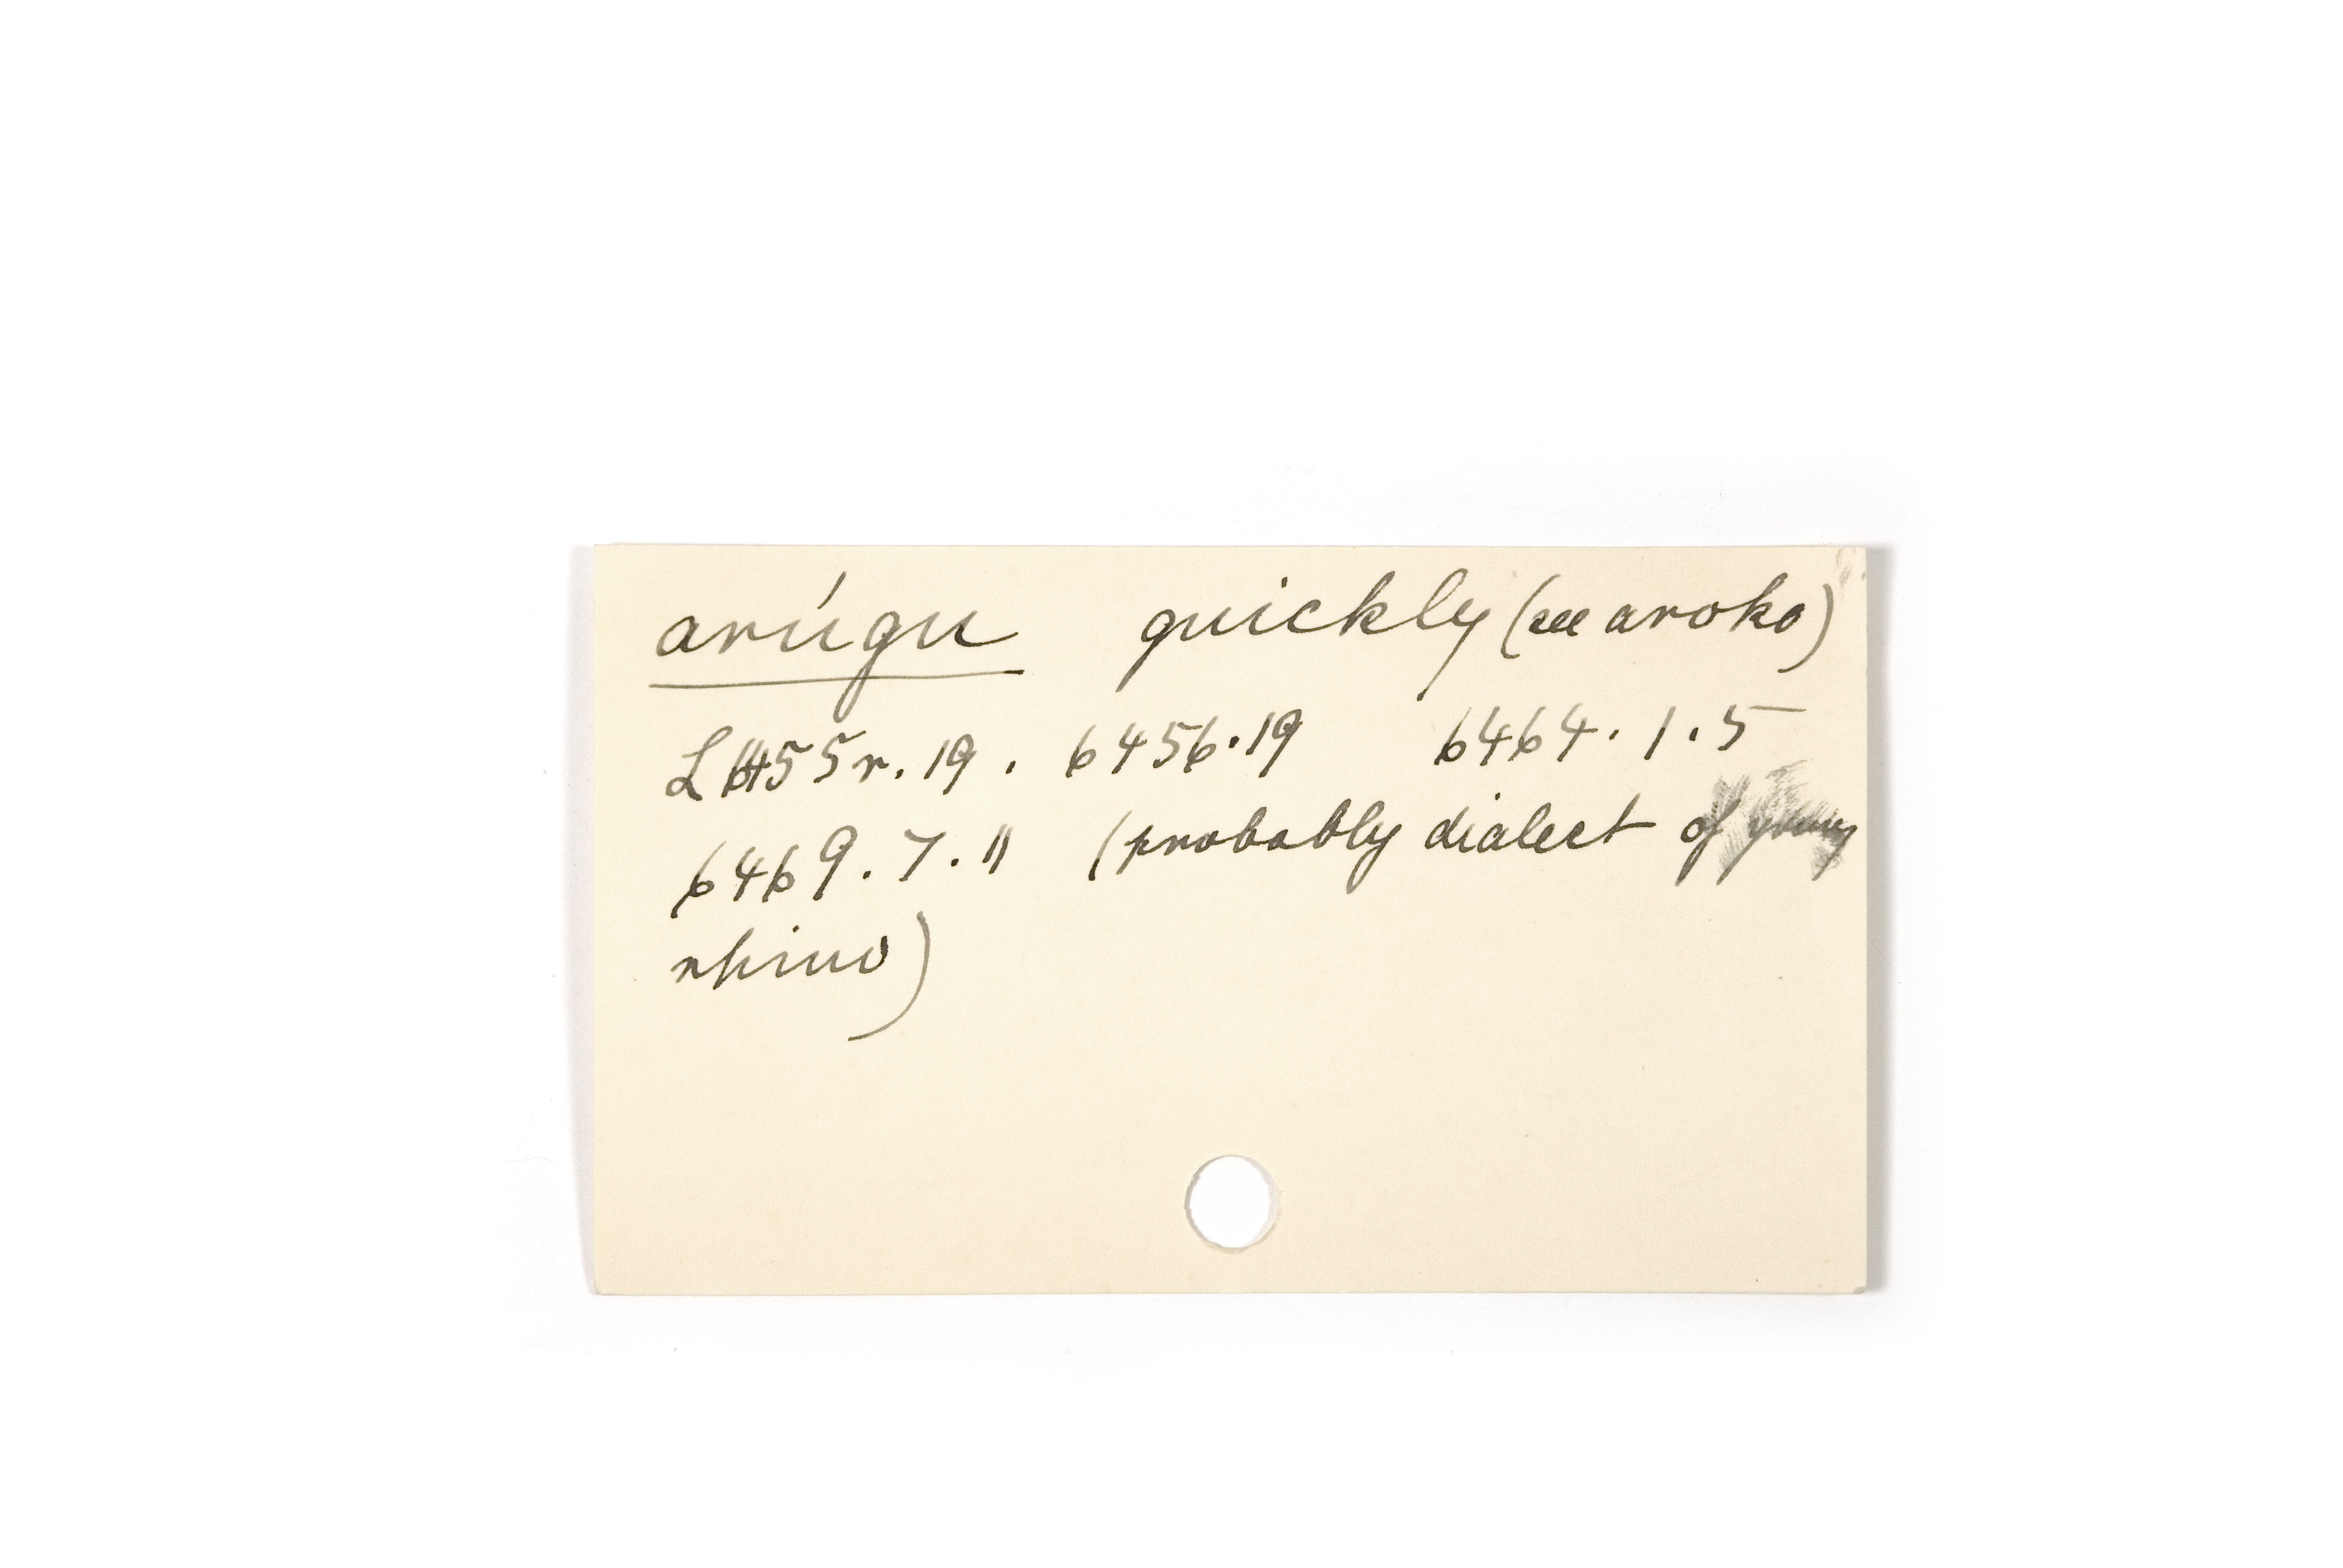 arúgu quickly (see aroko)
L 6455r.19. 6456.19 6464.1.5
6469.7.11 (probably dialect of young
rhino)